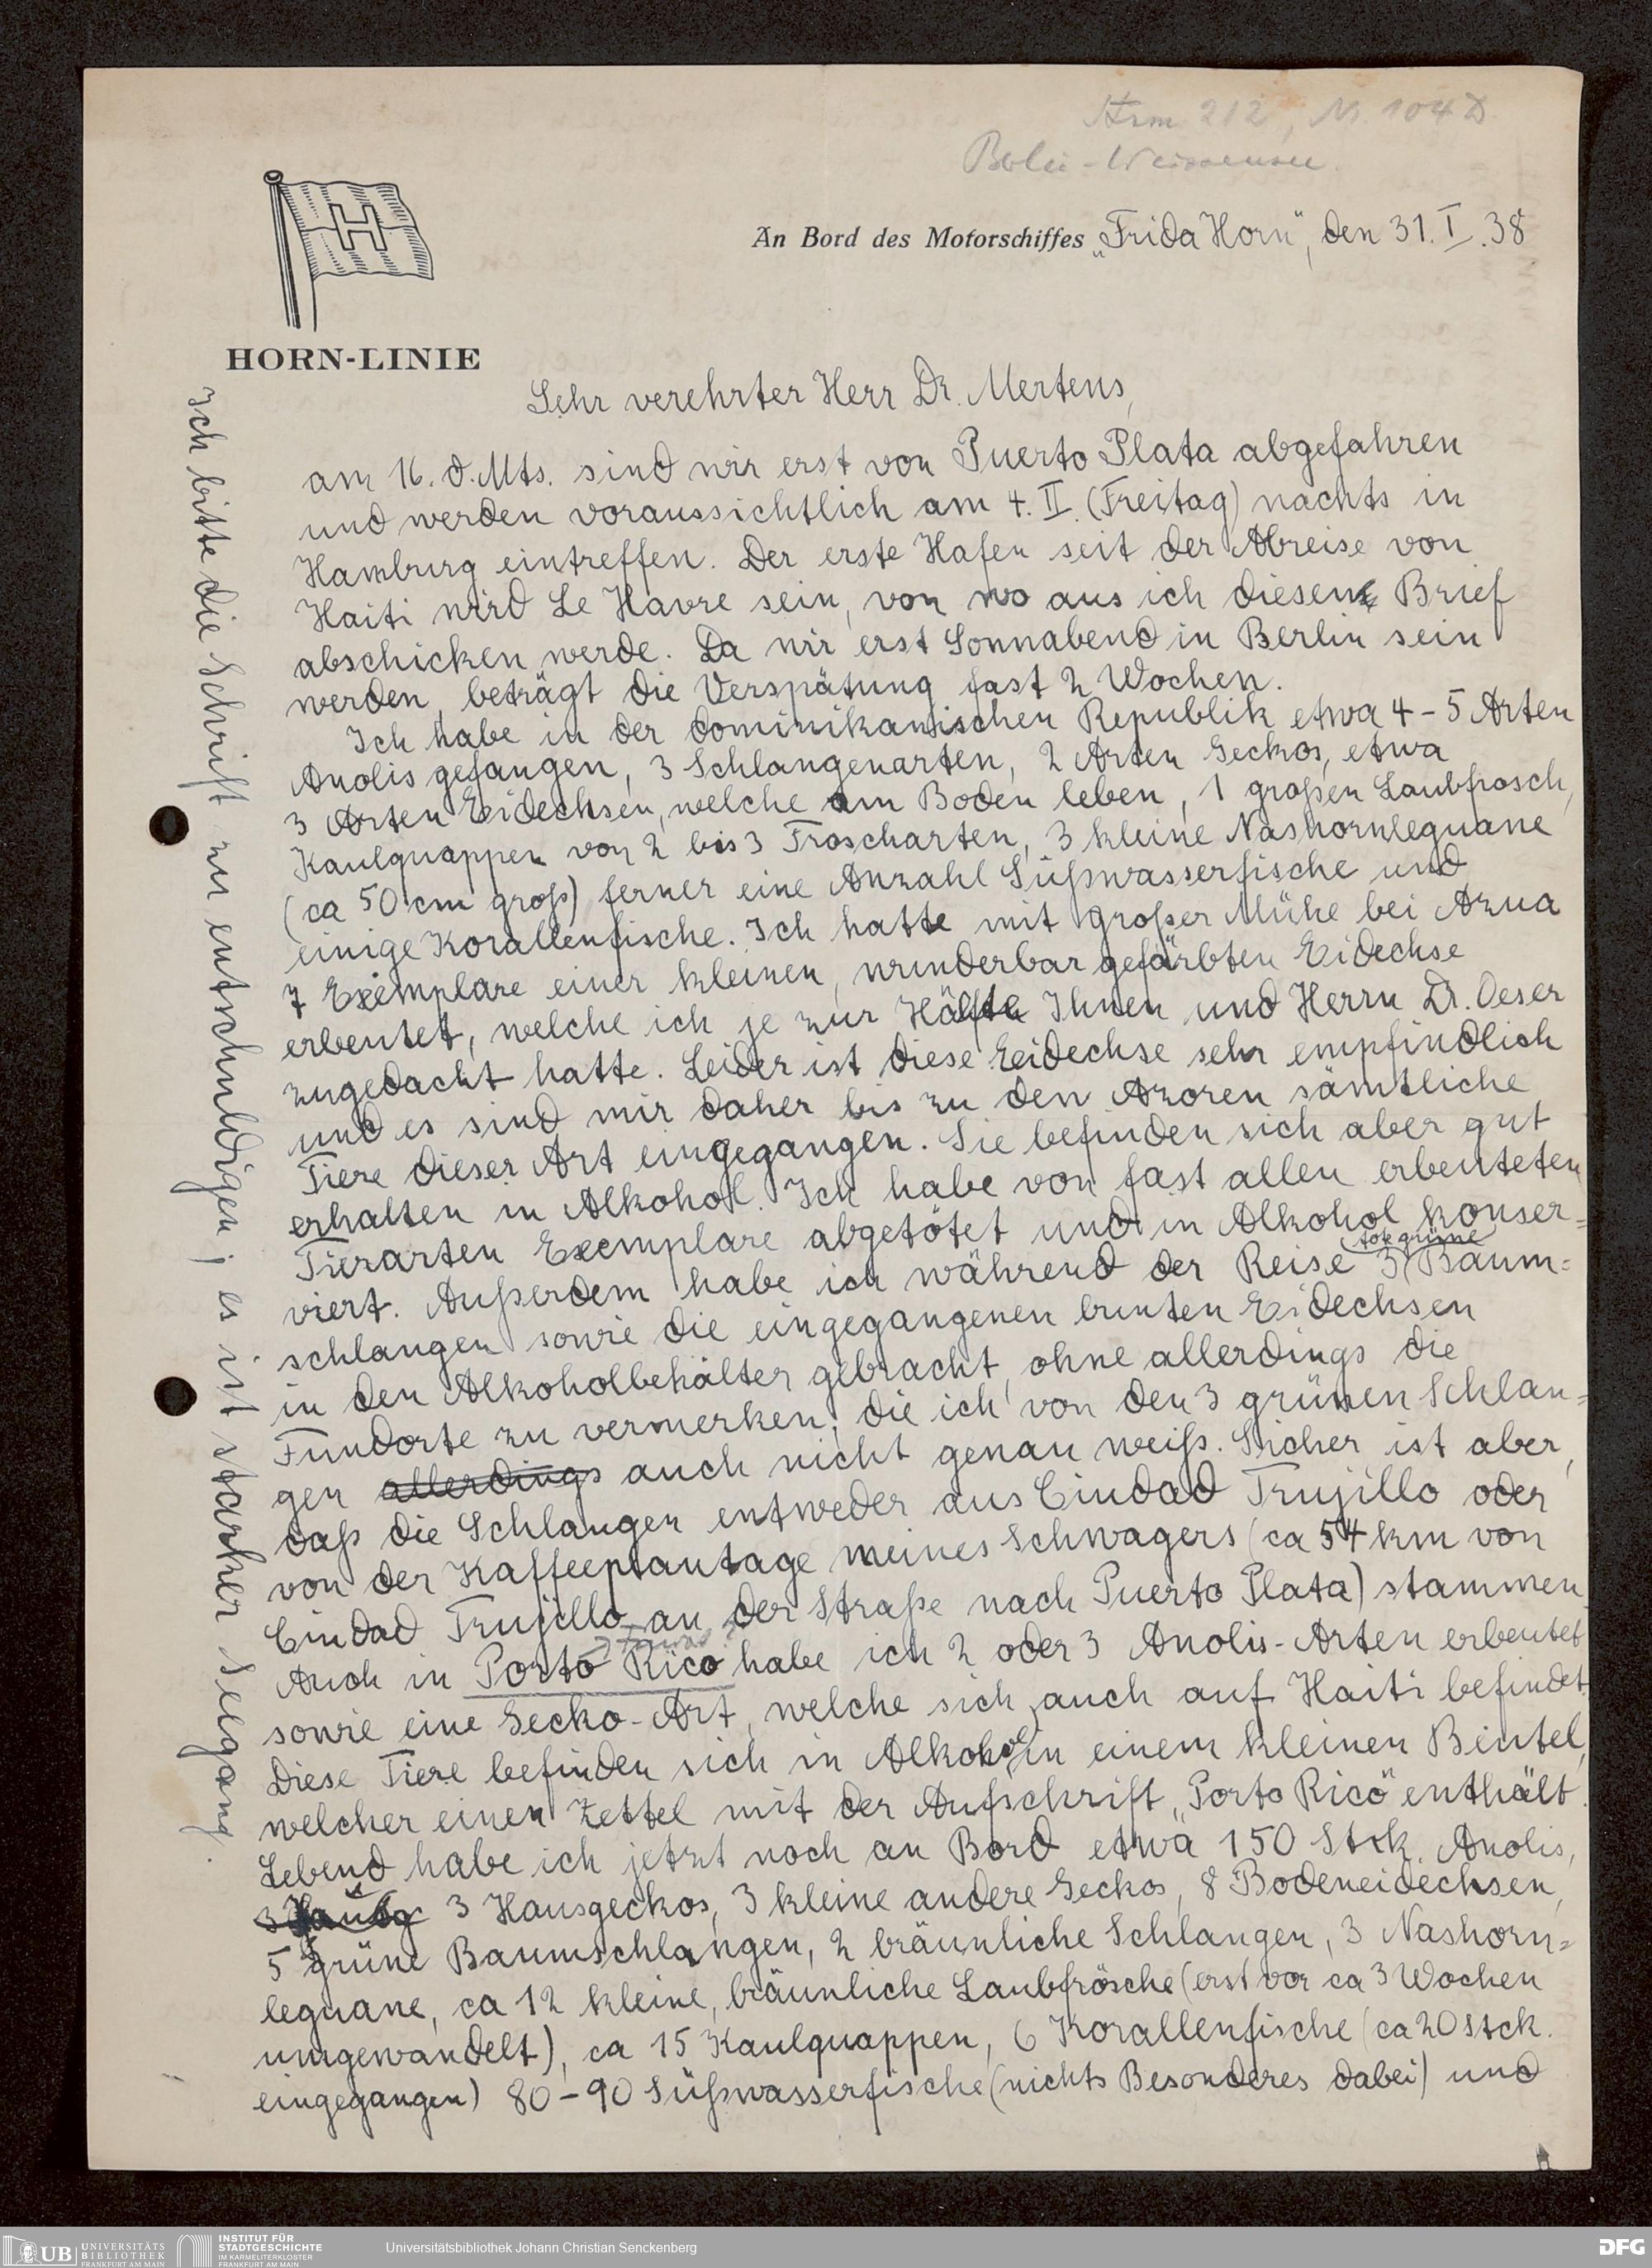 212, Nr. 104 D.
Berlin-Weissensee
H
An Bord des Motorschiffes „Frida Horn", den 31. I. 38
HORN-LINIE
Sehr verehrter Herr Dr. Mertens,
am 16. d. Mts. sind wir erst von Puerto Plata abgefahren
und werden voraussichtlich am 4. II. (Freitag) nachts in
Hamburg eintreffen. Der erste Hafen seit der Abreise von
Haiti wird Le Havre sein, von wo aus ich diesen Brief
abschicken werde. Da wir erst Sonnabend in Berlin sein
werden, beträgt die Verspätung fast 2 Wochen.
Ich habe in der dominikanischen Republik etwa 4-5 Arten
Anolis gefangen, 3 Schlangenarten, 2 Arten Geckos, etwa
3 Arten Eidechsen, welche am Boden leben, 1 großen Laubfrosch,
Kaulquappen von 2 bis 3 Froscharten, 3 kleine Nashornleguane
(ca 50 cm groß) ferner eine Anzahl Süßwasserfische und
einige Korallenfische. Ich hatte mit großer Mühe bei Azua
7 Exemplare einer kleinen, wunderbar gefärbten Eidechse
erbeutet, welche ich je zur Hälfte Ihnen und Herrn Dr. Oeser
zugedacht hatte. Leider ist diese Eidechse sehr empfindlich
und es sind mir daher bis zu den Azoren sämtliche
Tiere dieser Art eingegangen. Sie befinden sich aber gut
erhalten in Alkohol. Ich habe von fast allen erbeuteten
Tierarten Exemplare abgetötet und in Alkohol konser=
viert. Außerdem habe ich während der Reise 3 tote grüne Baum=
schlangen sowie die eingegangenen bunten Eidechsen
in den Alkoholbehälter gebracht, ohne allerdings die
Fundorte zu vermerken, die ich von den 3 grünen Schlan=
gen allerdings auch nicht genau weiß. Sicher ist aber,
daß die Schlangen entweder aus Ciudad Trujillo oder
von der Kaffeeplantage meines Schwagers (ca 54 km von
Ciudad Trujillo an der Straße nach Puerto Plata) stammen.
Auch in Porto Rico habe ich 2 oder 3 Anolis-Arten erbeutet
sowie eine Gecko-Art, welche sich auch auf Haiti befindet.
Diese Tiere befinden sich in Alkohol in einem kleinen Beutel,
welcher einen Zettel mit der Aufschrift „Porto Rico" enthält.
Lebend habe ich jetzt noch an Bord etwa 150 Stck. Anolis,
3 Hausgeckos, 3 kleine andere Geckos, 8 Bodeneidechsen,
5 grüne Baumschlangen, 2 bräunliche Schlangen, 3 Nashorn=
leguane, ca 12 kleine, bräunliche Laubfrösche (erst vor ca 3 Wochen
umgewandelt), ca 15 Kaulquappen, 6 Korallenfische (ca 20 Stck.
eingegangen) 80-90 Süßwasserfische (nichts Besonderes dabei) und
Ich bitte die Schrift zu entschuldigen; es ist starker Seegang.
UB UNIVERSITÄTS
BIBLIOTHEK
FRANKFURT AM MAIN
INSTITUT FÜR
STADTGESCHICHTE
IM KARMELITERKLOSTER
FRANKFURT AM MAIN
Universitätsbibliothek Johann Christian Senckenberg
DFG